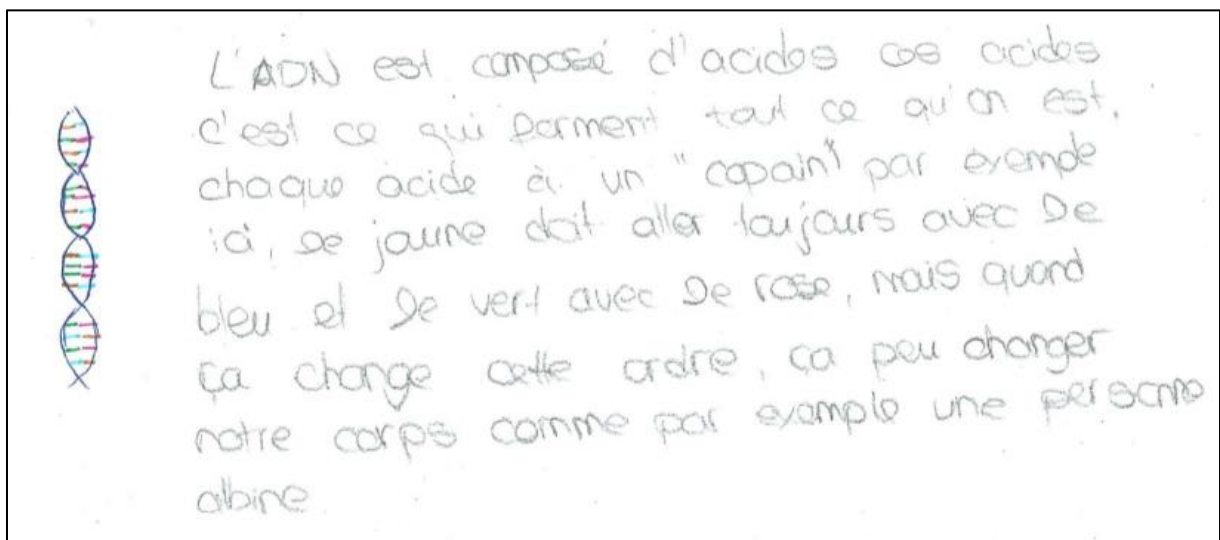 L'ADN est composé d'acides ces acides
c'est ce qui forment tout ce qu'on est.
chaque acide à un "copain" par exemple
ici, le jaune doit aller toujours avec le
bleu et le vert avec le rose, mais quand
ça change cette ordre, ça peu changer
notre corps comme par exemple une personne
albine